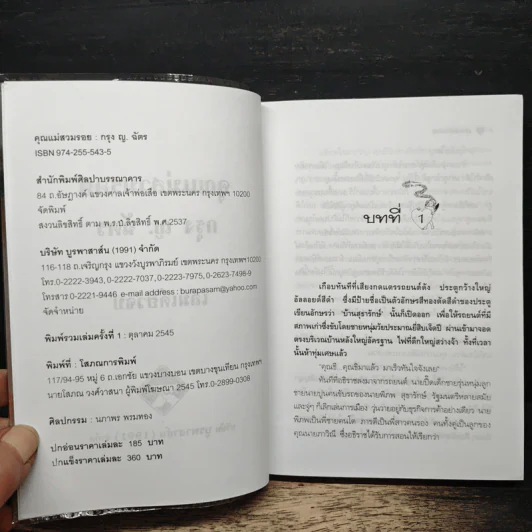 คุณแม่สวมรอย : กรุง ญ. ฉัตร
ISBN 974-255-543-5
สำนักพิมพ์ศิลปาบรรณาคาร
84 ถ.อัษฎางค์ แขวงศาลเจ้าพ่อเสือ เขตพระนคร กรุงเทพฯ 10200
จัดพิมพ์
สงวนลิขสิทธิ์ ตาม พ.ร.บ.ลิขสิทธิ์ พ.ศ.2537
บริษัท บูรพาสาส์น (1991) จำกัด
116-118 ถ.เจริญกรุง แขวงวังบูรพาภิรมย์ เขตพระนคร กรุงเทพฯ10200
โทร.0-2222-3943, 0-2222-7037, 0-2223-7975, 0-2623-7498-9
โทรสาร 0-2221-9446 e-mail address : burapasarn@yahoo.com
จัดจำหน่าย
พิมพ์รวมเล่มครั้งที่ 1 : ตุลาคม 2545
พิมพ์ที่ : โสภณการพิมพ์
117/94-95 หมู่ 6 ถ.เอกชัย แขวงบางบอน เขตบางขุนเทียน กรุงเทพฯ
นายโสภณ วงศ์วาสนา ผู้พิมพ์โฆษณา 2545 โทร.0-2899-0308
ศิลปกรรม : นภาพร พรมทอง
ปกอ่อนราคาเล่มละ 185 บาท
ปกแข็งราคาเล่มละ 360 บาท
บทที่ 1
เกือบทันทีที่เสียงกดแตรรถยนต์ดัง ประตูกว้างใหญ่
อัลลอยด์สีดำ ซึ่งมีป้ายชื่อเป็นตัวอักษรสีทองตัดสีดำของประตู
เขียนอักษรว่า 'บ้านสุธารักษ์' นั้นก็เปิดออก เพื่อให้รถยนต์ที่มี
สภาพเก่าซึ่งขับโดยชายหนุ่มวัยประมาณยี่สิบเจ็ดปี ผ่านเข้ามาจอด
ตรงบริเวณบ้านหลังใหญ่อัครฐาน ไฟที่ตึกใหญ่สว่างจ้า ทั้งที่เวลา
นั้นห้าทุ่มเศษแล้ว
"คุณธี.. คุณธีมาแล้ว มาเร็วทันใจจังเลย"
ทันทีที่อธิราชลงมาจากรถยนต์ นายเปิดเด็กชายรุ่นหนุ่มลูก